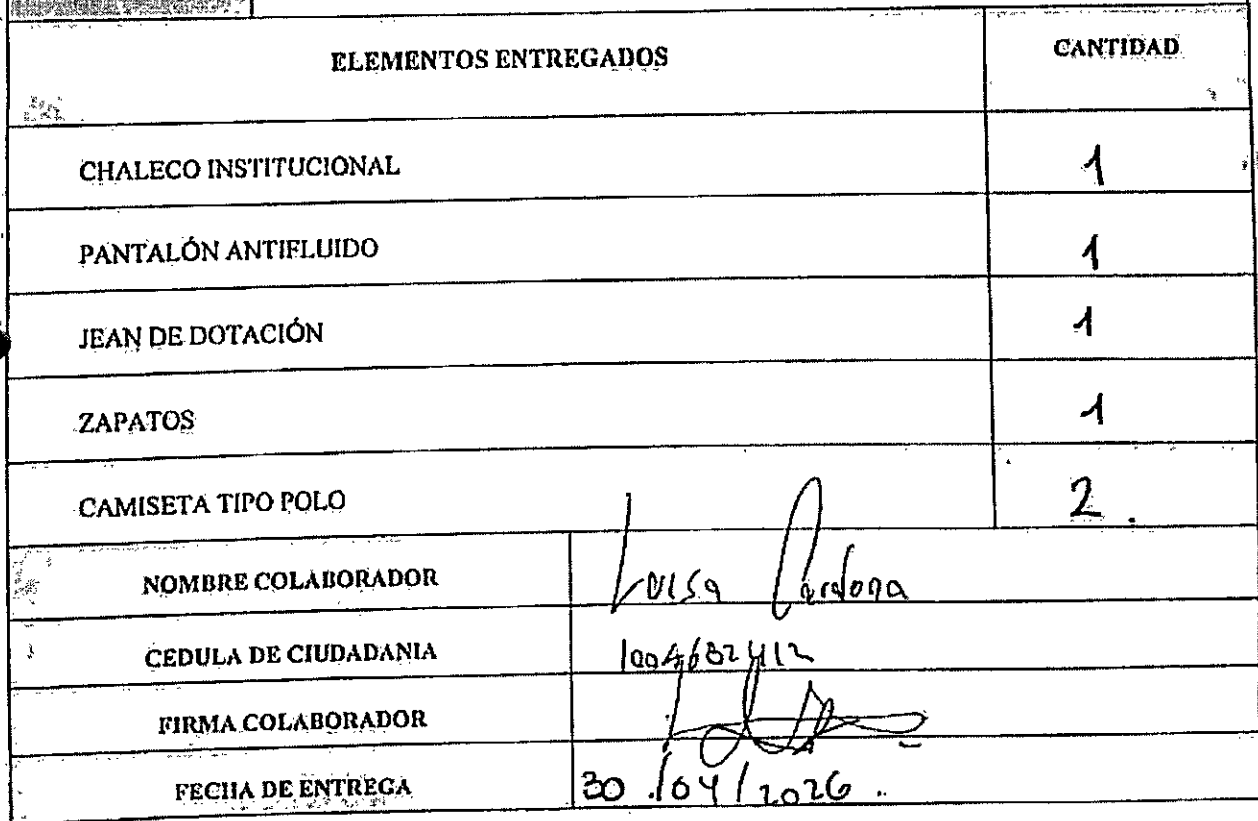 ELEMENTOS ENTREGADOS CANTIDAD
CHALECO INSTITUCIONAL 1
PANTALÓN ANTIFLUIDO 1
JEAN DE DOTACIÓN 1
ZAPATOS 1
CAMISETA TIPO POLO 2.
NOMBRE COLABORADOR Luisa Cardona
CEDULA DE CIUDADANIA 1004682412
FIRMA COLABORADOR
FECHA DE ENTREGA 30/04/2026.